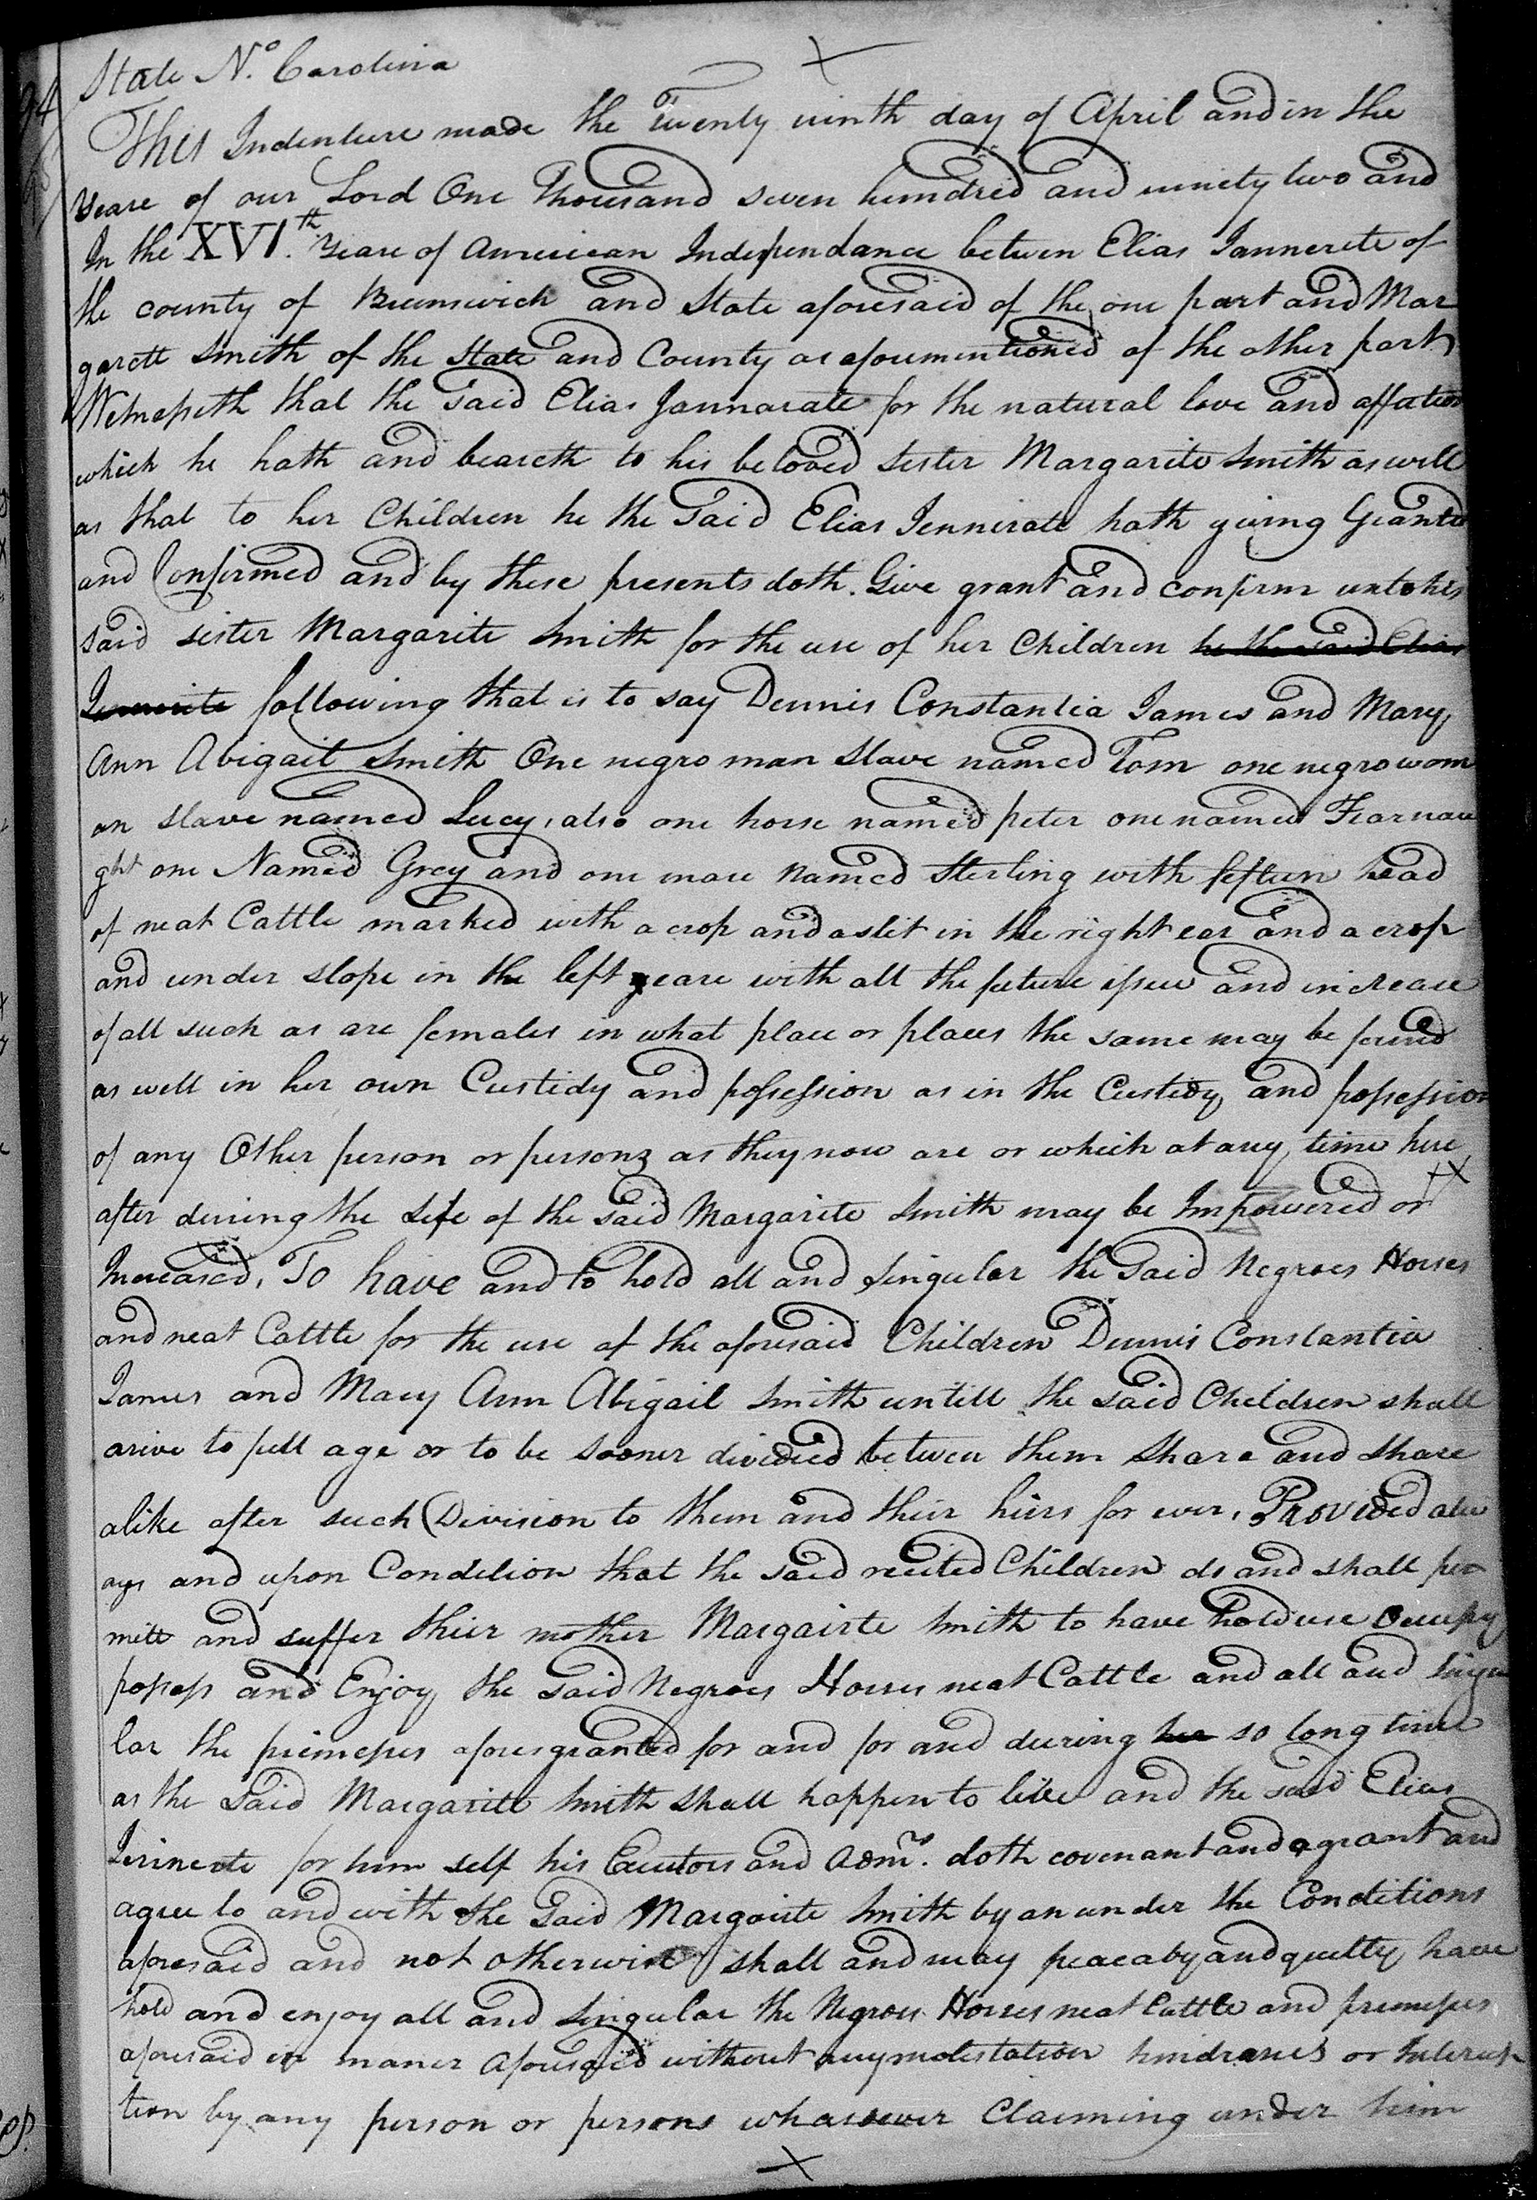 State No. Carolina
This Indenture made the Twenty ninth day of April and in the
Yeare of our Lord One Thousand seven hundred and ninety two and
In the XVIth. Yeare of American Independance betwen Elias Jannerete of
the county of Brunswick and State aforesaid of the one part and Mar
garett Smith of the State and County as aforementioned of the other part
Witnesseth that the said Elias Jannarate for the natural love and affection
which he hath and beareth to his beloved sister Margarite Smith as well
as that to her Children he the said Elias Jennerate hath giving Granted
and Confirmed and by these presents doth. Give grant and confirm unto his
said sister Margarite Smith for the use of her Children he the said Elias
Jennerite following that is to say Dennis Constantia James and Mary
Ann Abigail Smith One negro man slave named Tom one negro wom
an slave named Lucy, also one horse named peter one named Fearnau
ght one Named Grey and one mare named Sterling with fefteen head
of neat Cattle marked with a crop and a slit in the right ear and a crop
and under slope in the left yeare with all the future issue and increase
of all such as are females in what place or places the same may be found
as well in her own Custidy and possession as in the Custidy and possession
of any Other person or persons as they now are or which at any time here
after during the life of the said Margarite Smith may be Impowered or
Increased, To have and to hold all and singular the said Negroes Horses
and neat Cattle for the use of the aforesaid Children Dennis Constantia
James and Mary Ann Abigail Smith untill the said Children shall
arive to full age or to be sooner divided between them share and share
alike after such Division to them and their heirs for ever, Provided alw
ays and upon Condition that the said recited Children do and shall per
mitt and suffer their mother Margairte Smith to have hold use Occupy
possess and Enjoy the said Negroes Horses neat Cattle and all and singu
lar the premeses aforesgranted for and for and during her so long time
as the said Margaritt Smith shall happen to live and the said Elias
Jerinerate for him self his Exectors and Admrs. doth covenant and agrant and
agree to and with the said Margairte Smith by an under the Conditions
aforesaid and not otherwise shall and may peacaby and quetly have
hold and enjoy all and singular the Negroes Horses neat Cattle and premeses
aforesaid in maner aforesaid without any molestation hindrances or Interup
tion by any person or persons whasoever Claiming under him